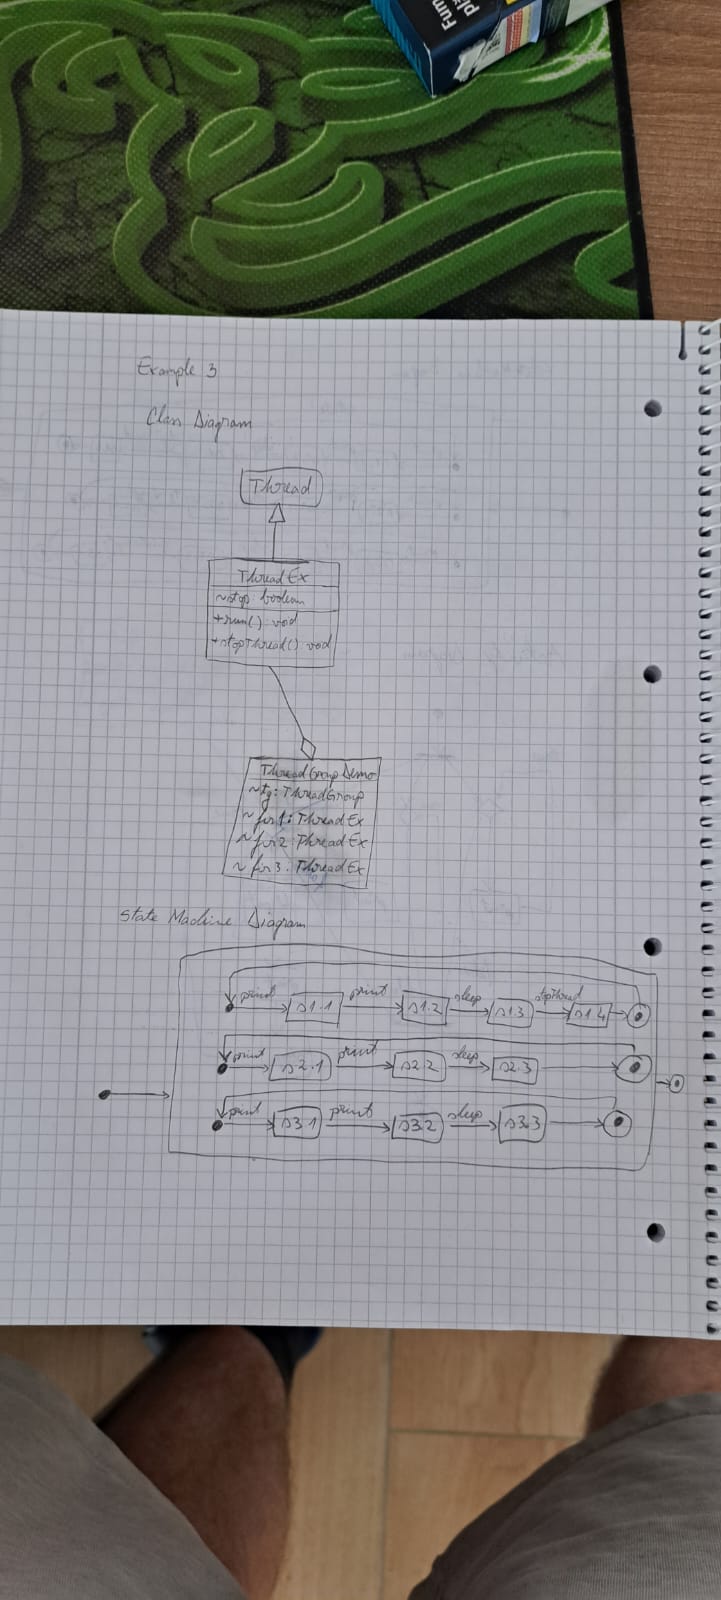 Fum
Example 3
Class Diagram
Thread
ThreadEx
~stop: boolean
+run(): void
+stopThread(): void
ThreadGroupDemo
~tg: ThreadGroup
~fir1: ThreadEx
~fir2: ThreadEx
~fir3: ThreadEx
State Machine Diagram
print s1.1 print s1.2 sleep s1.3 stopThread s1.4
print s2.1 print s2.2 sleep s2.3
print s3.1 print s3.2 sleep s3.3